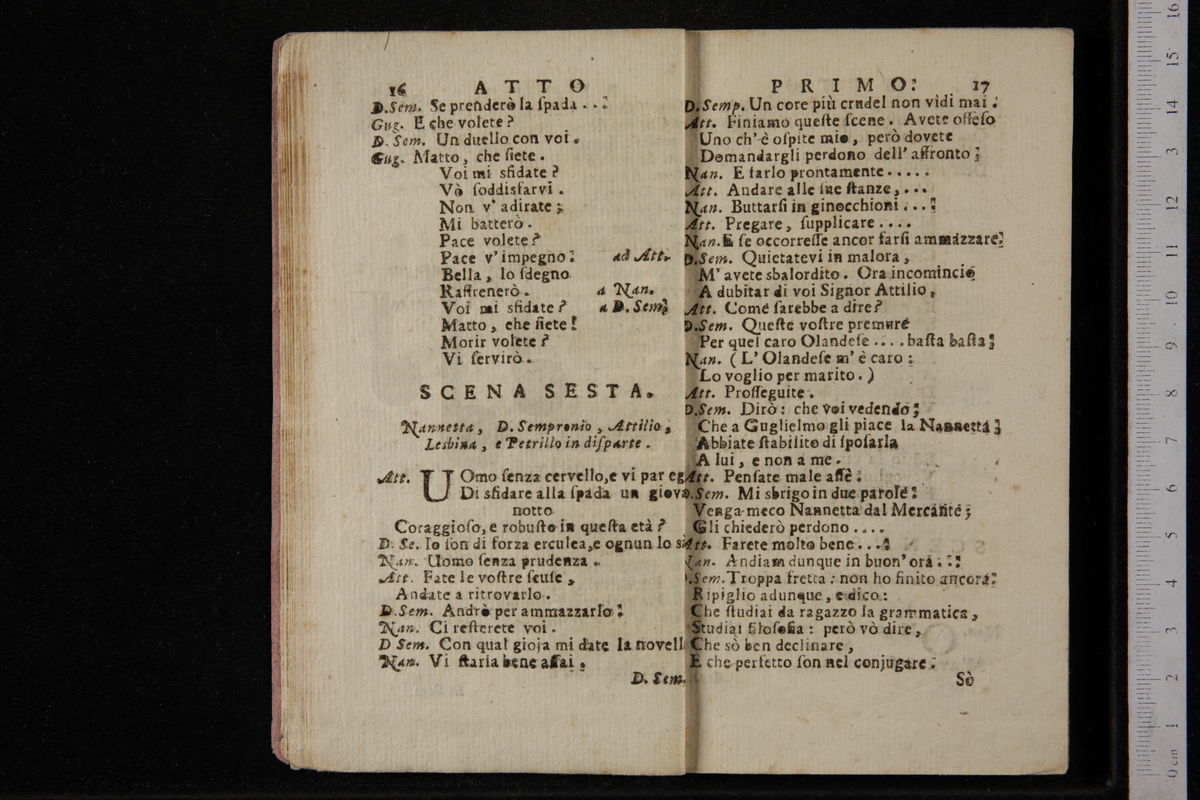 16 ATTO
D.Sem. Se prenderò la ſpada . . .
Gug. E che volete?
D. Sem. Un duello con voi.
Gug. Matto, che ſiete.
Voi mi sfidate?
Vò ſoddisfarvi.
Non v' adirate;
Mi batterò.
Pace volete?
Pace v' impegno: ad Att.
Bella, lo ſdegno
Raffrenerò. a Nan.
Voi mi sfidate? a D. Sem.
Matto, che ſiete!
Morir volete?
Vi ſervirò.
SCENA SESTA.
Nannetta, D. Sempronio, Attilio,
Lesbina, e Petrillo in diſparte.
Att. UOmo ſenza cervello,e vi par eg
Di sfidare alla ſpada un giova
notto
Coraggioſo, e robuſto in queſta età?
D. Se. Io ſon di forza erculea,e ognun lo s
Nan. Uomo ſenza prudenza.
Att. Fate le voſtre ſcuſe,
Andate a ritrovarlo.
D.Sem. Andrò per ammazzarlo:
Nan. Ci reſterete voi.
D Sem. Con qual gioja mi date la novell
Nan. Vi ſtaria bene aſſai.
D. Sem.
PRIMO. 17
D.Semp. Un core più crudel non vidi mai.
Att. Finiamo queſte ſcene. Avete offeſo
Uno ch' è oſpite mio, però dovete
Domandargli perdono dell' affronto;
Nan. E farlo prontamente . . . . .
Att. Andare alle ſue ſtanze, . . .
Nan. Buttarſi in ginocchioni . . . .
Att. Pregare, ſupplicare . . . .
Nan. E ſe occorreſſe ancor farſi ammazzare.
D.Sem. Quietatevi in malora,
M' avete sbalordito. Ora incomincio
A dubitar di voi Signor Attilio.
Att. Come ſarebbe a dire?
D.Sem. Queſte voſtre premure
Per quel caro Olandeſe . . . . baſta baſta.
Nan. ( L' Olandeſe m' è caro:
Lo voglio per marito. )
Att. Proſſeguite.
D.Sem. Dirò: che voi vedendo,
Che a Guglielmo gli piace la Nannetta,
Abbiate ſtabilito di ſpoſarla
A lui, e non a me.
Att. Penſate male affè.
D.Sem. Mi sbrigo in due parole:
Venga meco Nannetta dal Mercante;
Gli chiederò perdono . . . .
Att. Farete molto bene . . . .
Nan. Andiam dunque in buon' ora. . .
D.Sem. Troppa fretta: non ho finito ancora.
Ripiglio adunque, e dico:
Che ſtudiai da ragazzo la grammatica,
Studiai filoſofia: però vò dire,
Che sò ben declinare,
E che perfetto ſon nel conjugare.
Sò